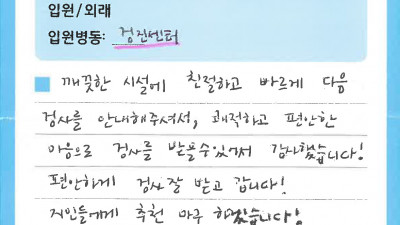 입원/외래
입원병동: 검진센터
깨끗한 시설에 친절하고 빠르게 다음
검사를 안내해주셔서, 쾌적하고 편안한
마음으로 검사를 받을수있어서 감사했습니다!
편안하게 검사 잘 받고 갑니다!
지인들에게 추천 마구 하겠습니다!